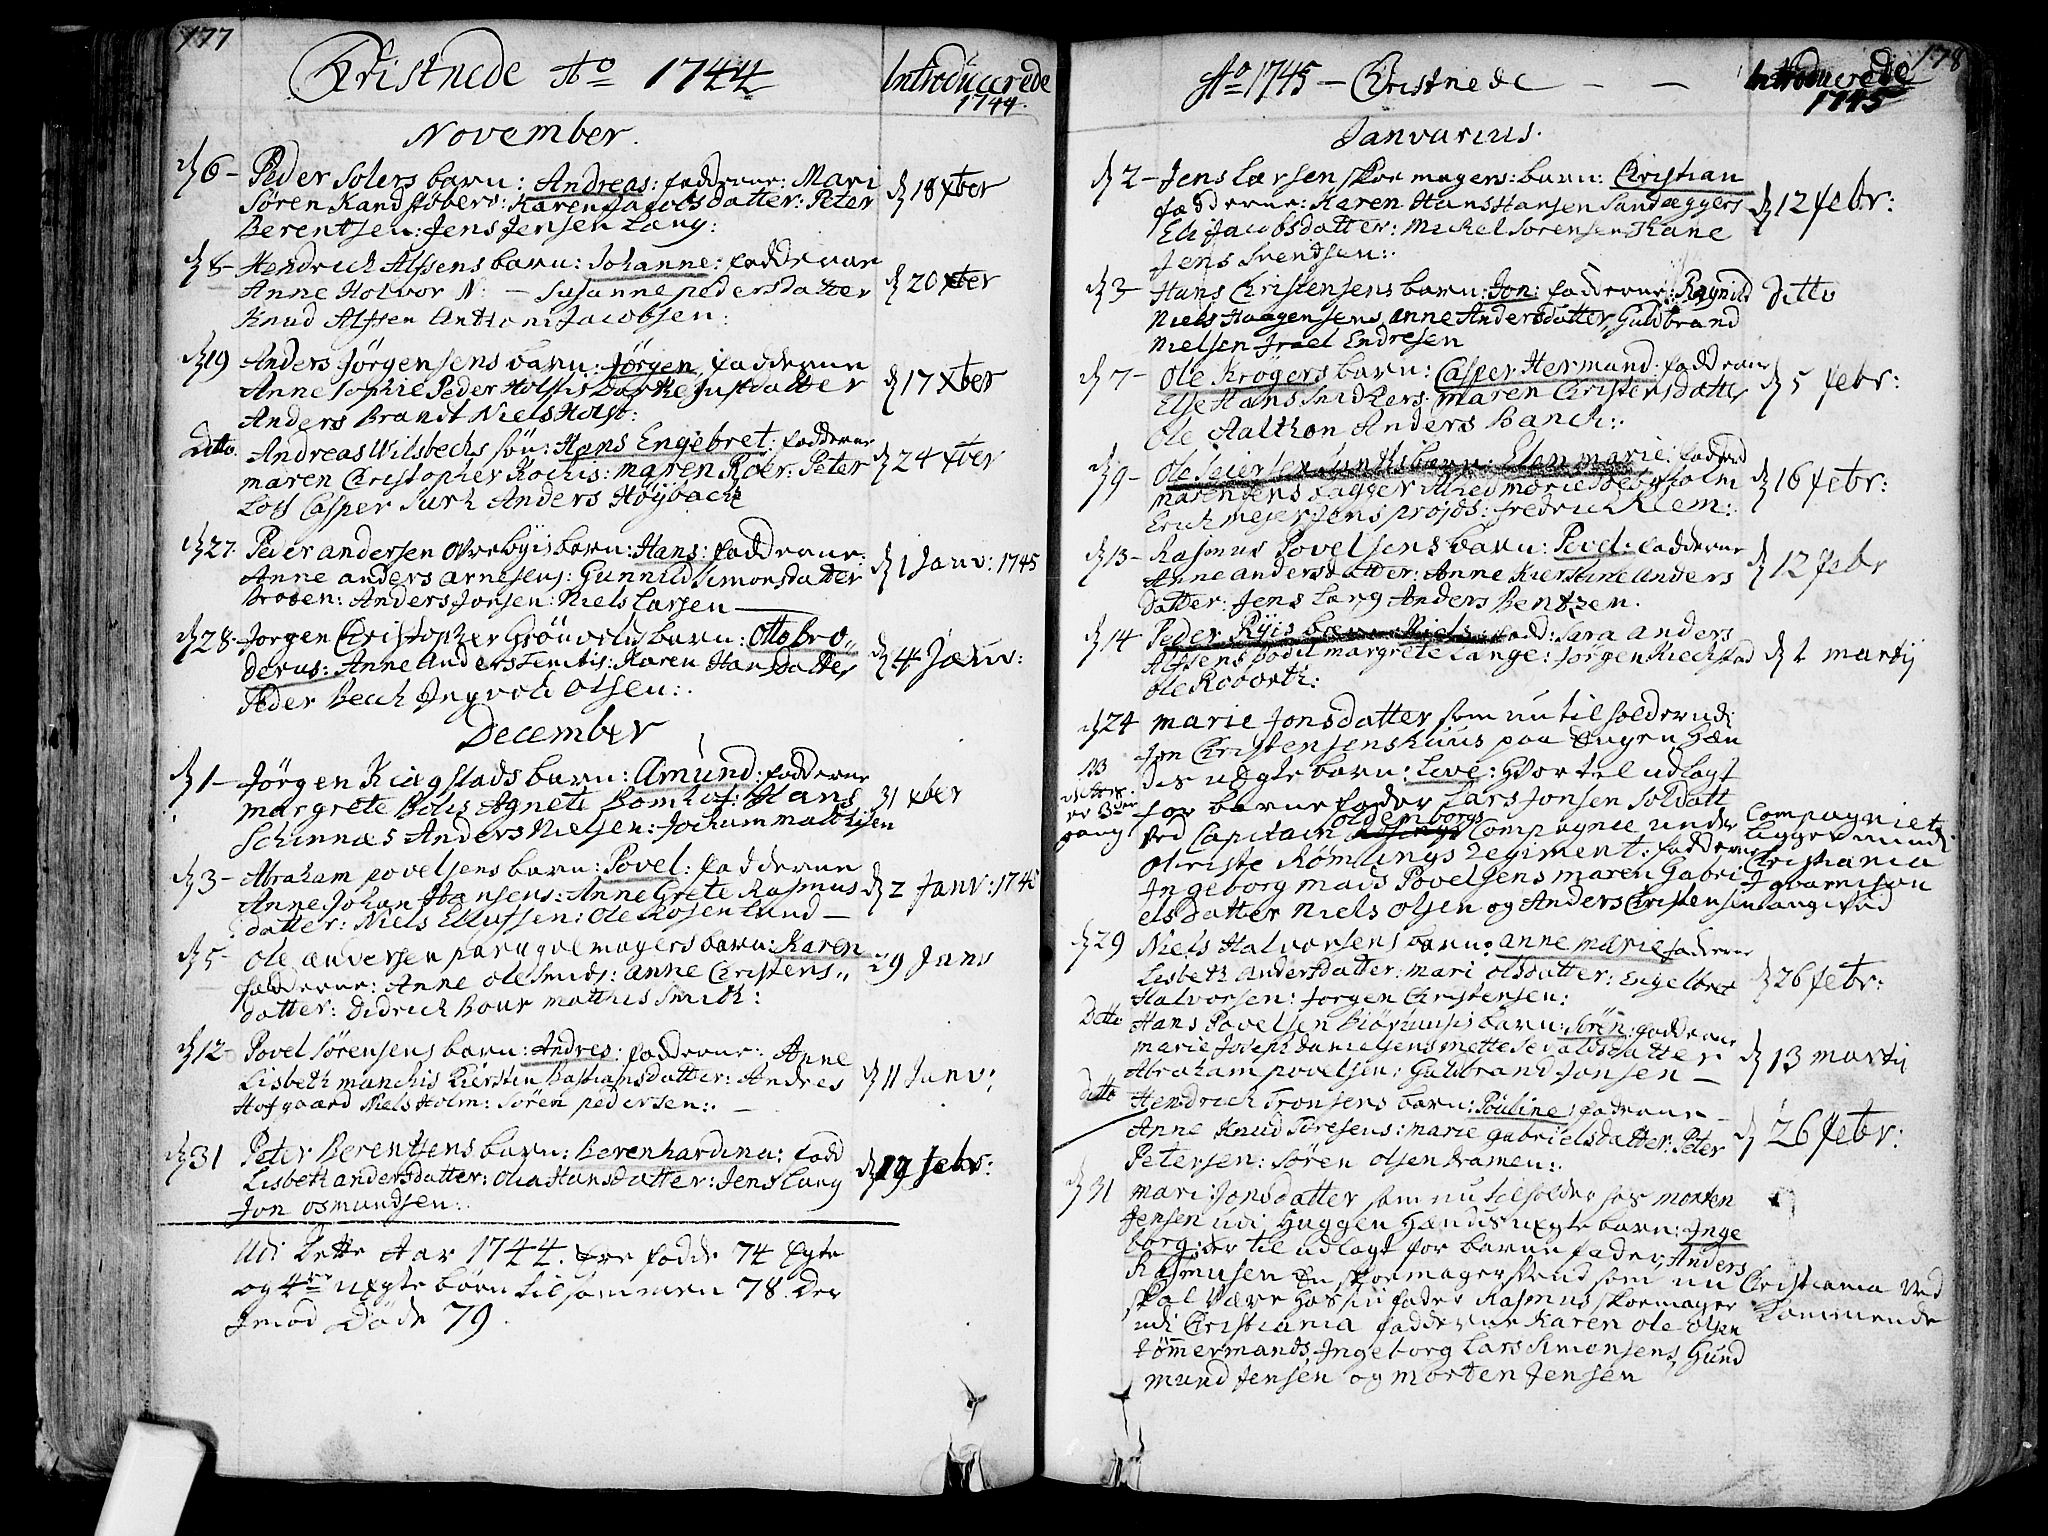 177
Christnede Ao 1744
Introducerede
1744.
November.
d 6 - Peder Solers barn: Andreas: fadderne: Mari
Søren Kandstøbers: Karen Jacobsdatter: Peter
Berentsen: Jens Jensen Lang:
d 18 Xber
d 8 - Hendrich Alfsens barn: Johanne: fadderne
Anne Holvor N: - Susanne pedersdatter
Knud Alfsen Anthoni Jacobsen:
d 20 Xber
d 19 Anders Jørgensens barn: Jørgen, fadderne
Anne Sophie Peder Holstis Justdatter
Anders Brandt Niels Holst:
d 17 Xber
Ditto. Andreas Wilsbechs søn: Hans Engebret: fadderne
maren Christopher Kochis: maren Roer: Peter
Casper Jurk Anders Høÿbach
d 24 Xber
d 27. Peder andersen barn: Hans: fadderne:
Anne anders arnesens: Gunnild Simonsdatter
Anders Jonsen: Niels Larsen
d 1 Janv: 1745
d 28. Jorgen Christopher Grönvolds barn: Otto bro,,
derus: Anne Anders: Karen Hansdatter
Peder Bech Ingvold Olsen:.
d 4 Janv:
December
d 1 - Jørgen Kiagstads barn: Amund: fadderne
margrete Agnete Bomhof: Hans
Schinnæs Anders Nielsen: Jochum matthisen
31 Xber
d 3 - Abraham povelsens barn: Povel: fadderne
Anne Johan Hansens: Anne Grete Rasmus
datter: Niels Ellufsen: Ole Rosenlund -
d 2 Janv: 1745
d 5 - Ole anversen magers barn: Karen
fadderne: Anne Ole Smids: anne Christens,,
datter: Didrich Bour matthis Smith:
29 Janv
d 12 - Povel Sørensens barn: Andres: fadderne: Anne
Lisbeth munchis Kiersten Bastiansdatter: Andres
Hofgaard Niels Holm: Søren pedersen:. -
d 11 Janv:
d 31 Peter Berentsens barn: Berenhardina: fadd
Lisbeth andersdatter: Olia Hansdatter: Jens Lang
Jon osmundsen:.
d 19 febr:
Udi dette Aar 1744. ere fødde 74 Egte
og 4re uEgte børn tilsammen 78. Der
Imod Døde 79.
178
Ao 1745 - Christnede - -
Introducerede
1745
Janvarius.
d 2 - Jens Larsen skoemagers: barn: Christian
fadderne: Karen Hans Hansen
Eli Jacobsdatter: Michel Sørensen
Jens Svendsen:.
d 12 febr:
d 3 - Hans Christensens barn: Jon: fadderne: Ragnild
Niels Haagensens anne Andersdatter, Guldbrand
Nielsen Irael Endresen
Ditto
d 7 - Ole Krøgers barn: Casper Hermund: fadderne
Else Hans Snidkers maren Christensdatter
Ole Aalthon Anders Banch:.
d 5 febr:
d 9 - Ole barn: Elen marie: fadd
maren Jens marie
Erich mejer Jens projds: fredrich Klem:.
d 16 febr:
d 13 - Rasmus Povelsens barn: Povel: fadderne
Anne andersdatter: Anne Kierstine Anders
datter: Jens Larg Anders Bentzen.
d 12 febr
d 14 Peder Rÿis barn: Niels: fadd: Sara Anders
Alfsens bodil margrete Lange: Jørgen Kiechstad
Ole Roborth:
d 2 martij
d 24 marie Jonsdatter som nu til holder udi
Jon Christensens huus paa Engen hæn
NB
dis uEgte barn: Live: Hvortil udlagt
er 3die
gang
for barnefader Lars Jonsen Soldatt
oldenborgs
ved Capitain Compagnie under
Compagniet
ligger nu udi
Oberste Rømlings Regiment: fadderne
Christiania
Ingeborg mads Povelsens maren Gabri
I gvarnison
elsdatter Niels Olsen og Anders Christensen angived
d 29 Niels Halvorsens barn: anne marie fadderne
Lisbeth Andersdatter: mari olsdatter: Engelbret
Halvorsen: Jorgen Christensen:
d 26 febr:
Ditto Hans Povelsen barn: Søren: fadderne
marie Joseph danielsens mette Sevaldsdatter
Abraham povelsen: Guldbrand Jonsen -
d 13 martij
ditto Hendrich Tronsens barn: Pouline: faderne -
Anne Knud Toresens: marie gabrielsdatter: Peter
Petersen: Søren Olsen dramen:.
d 26 febr:
d 31 mari Jonsdatter som nu tilholder hos morten
Jensen udi Huggen Hændis uEgte barn: Inge
borg: der til udlagt for barne fader, Anders
Rasmusen En skoemagersvend som nu
skal være hos sin fader Rasmus skoemager
Christiania ved
Kommende
udi Christiania fadderne Karen Ole Olsen
tømmermands, Ingeborg Lars Simensens, Gund
mund Jensen og morten Jensen